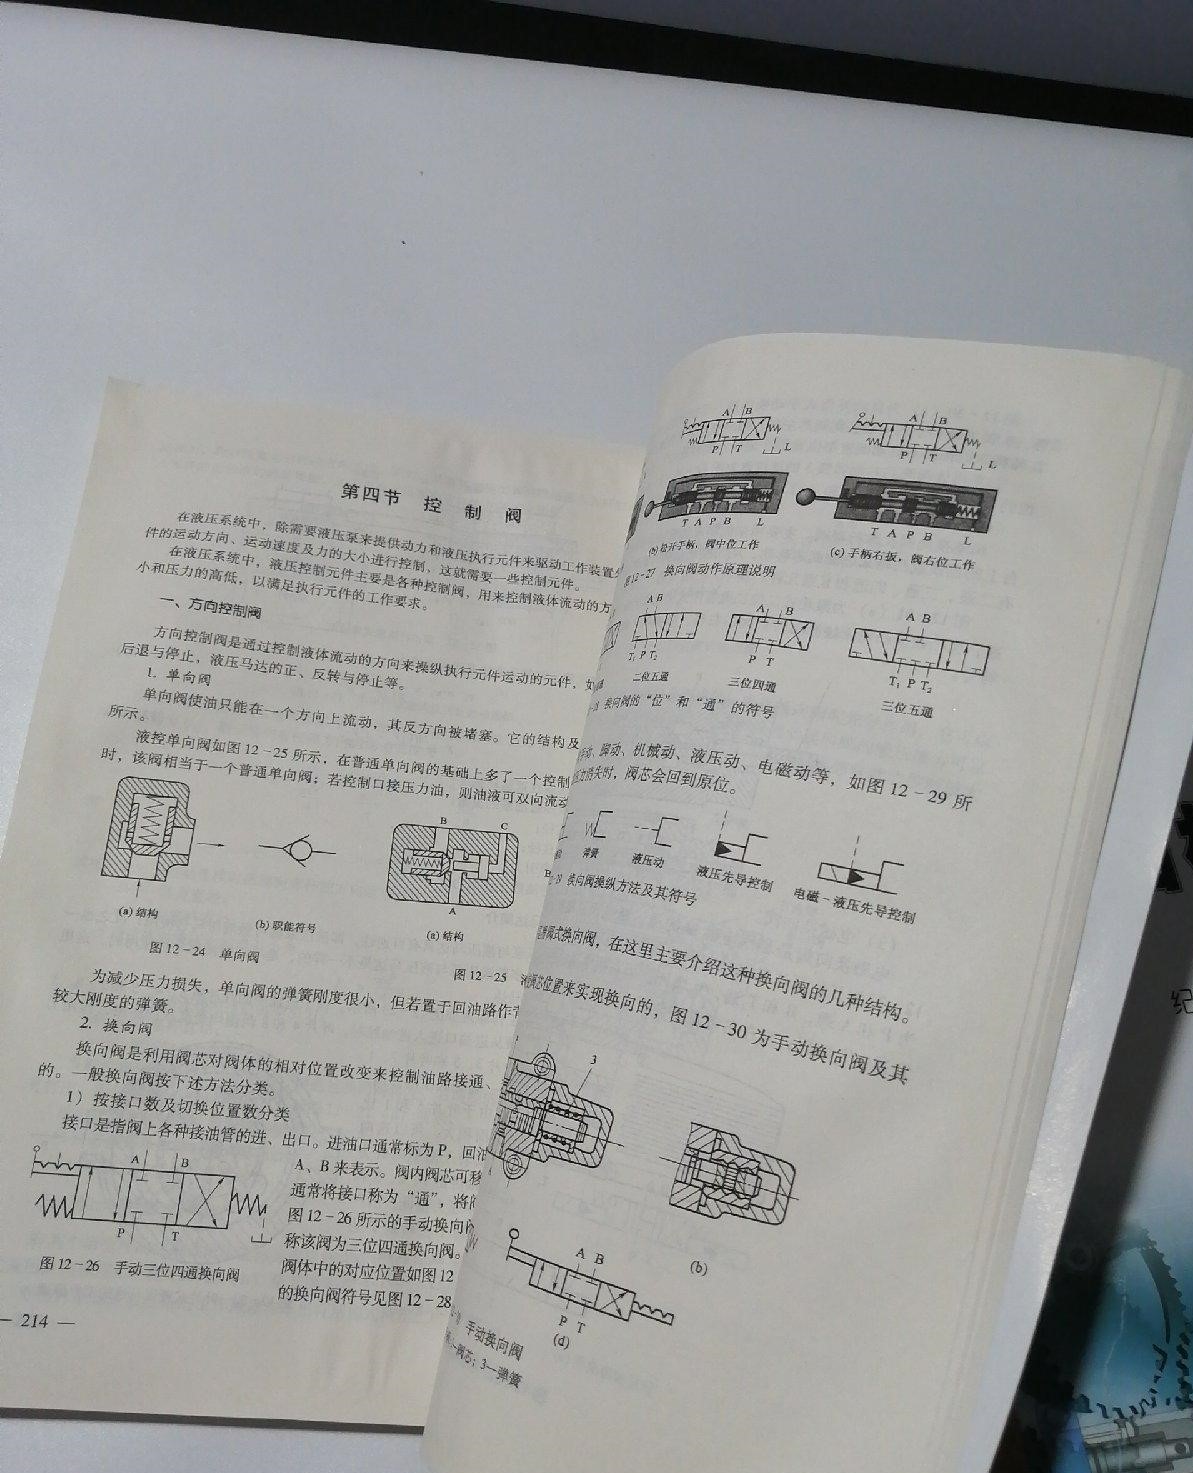 第四节 控制阀
在液压系统中，除需要液压泵来提供动力和液压执行元件来驱动工作装置
件的运动方向、运动速度及力的大小进行控制，这就需要一些控制元件。
在液压系统中，液压控制元件主要是各种控制阀，用来控制液体流动的方
小和压力的高低，以满足执行元件的工作要求。
一、方向控制阀
方向控制阀是通过控制液体流动的方向来操纵执行元件运动的元件，如
后退与停止，液压马达的正、反转与停止等。
1. 单向阀
单向阀使油只能在一个方向上流动，其反方向被堵塞。它的结构及
所示。
液控单向阀如图12-25所示，在普通单向阀的基础上多了一个控制
时，该阀相当于一个普通单向阀；若控制口接压力油，则油液可双向流动
B C
A
(a) 结构
(b) 职能符号
(a) 结构
图12-24 单向阀
图12-25
为减少压力损失，单向阀的弹簧刚度很小，但若置于回油路作
较大刚度的弹簧。
2. 换向阀
换向阀是利用阀芯对阀体的相对位置改变来控制油路接通、
的。一般换向阀按下述方法分类。
1）按接口数及切换位置数分类
接口是指阀上各种接油管的进、出口。进油口通常标为P，回油
A、B来表示。阀内阀芯可移
通常将接口称为“通”，将
图12-26所示的手动换向
称该阀为三位四通换向阀。
阀体中的对应位置如图12
的换向阀符号见图12-28
A B
P T
图12-26 手动三位四通换向阀
— 214 —
A B
P T L
A B
P T L
T A P B L
T A P B L
(b) 松开手柄，阀中位工作
(c) 手柄右扳，阀右位工作
图12-27 换向阀动作原理说明
A B
T₁ P T₂
二位五通
A B
P T
三位四通
A B
T₁ P T₂
三位五通
换向阀的“位”和“通”的符号
脚动、机械动、液压动、电磁动等，如图12-29所
消失时，阀芯会回到原位。
弹簧
液压动
液压先导控制
电磁-液压先导控制
换向阀操纵方法及其符号
阀式换向阀，在这里主要介绍这种换向阀的几种结构。
芯位置来实现换向的，图12-30为手动换向阀及其
3
(b)
A B
P T
(d)
手动换向阀
阀芯；3—弹簧
纪